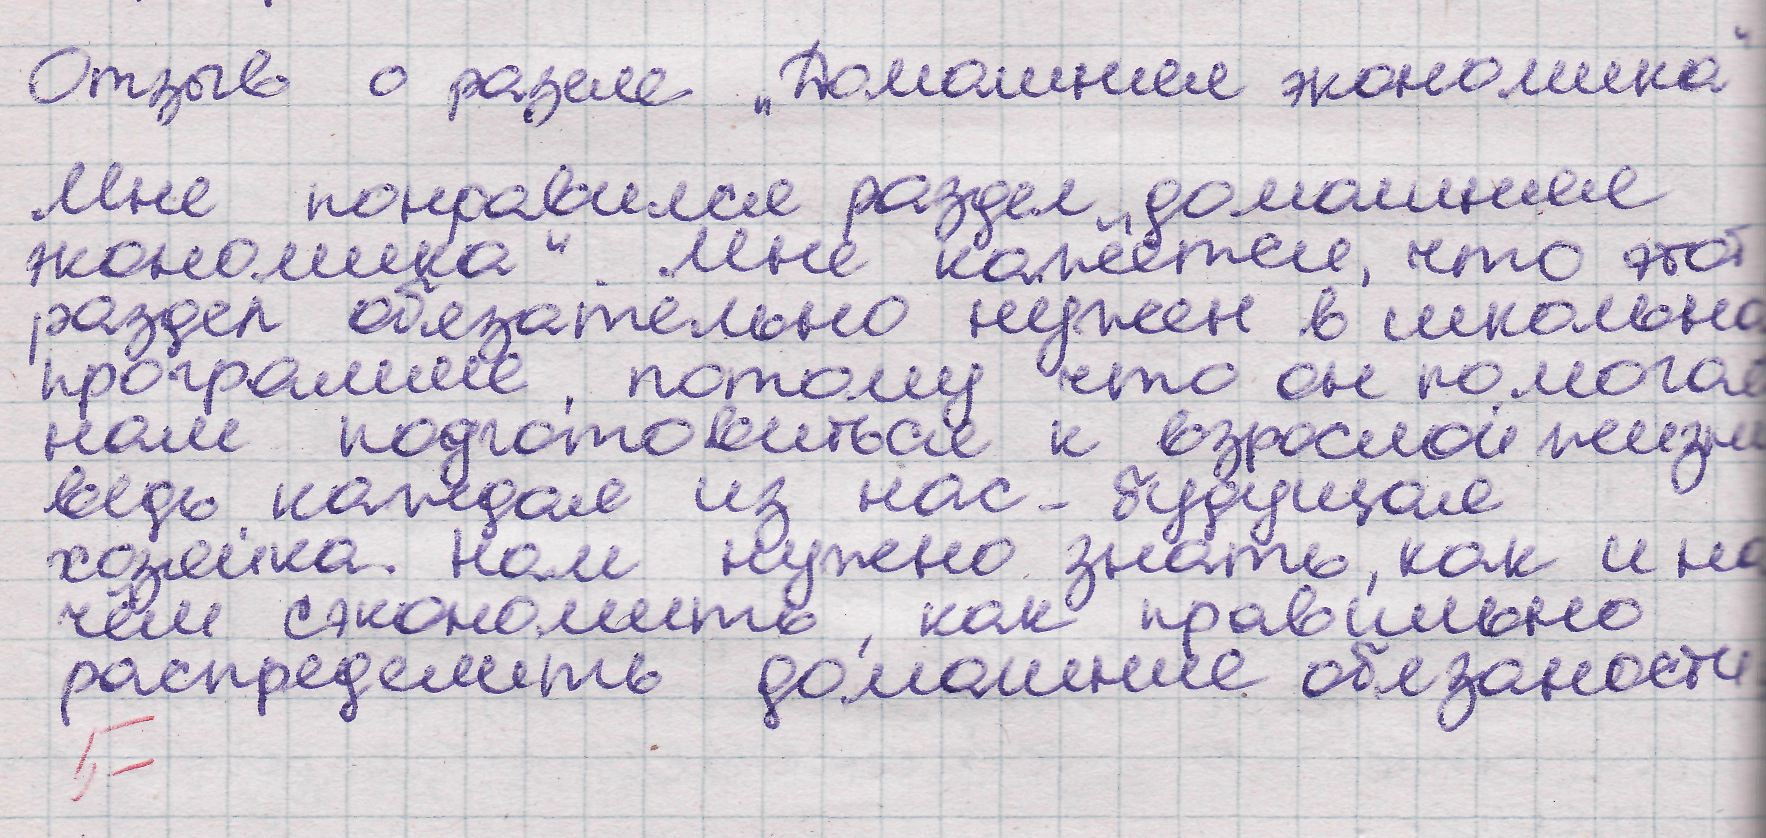 Отзыв о разеле „Домашняя экономика“
Мне понравился раздел „домашняя
экономика“. Мне кажется, что этот
раздел обязательно нужен в школьно
программе, потому что он помогае
нам подготовиться к взрослой жизни
ведь каждая из нас - будущая
хозяйка. Нам нужно знать, как и на
чём сэкономить, как правильно
распределить домашние обязаности
5-